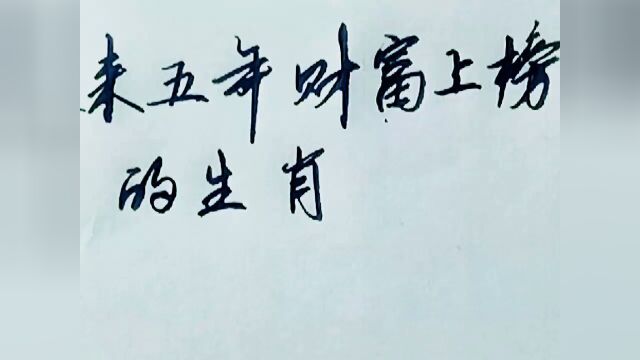 来五年财富上榜
的生肖